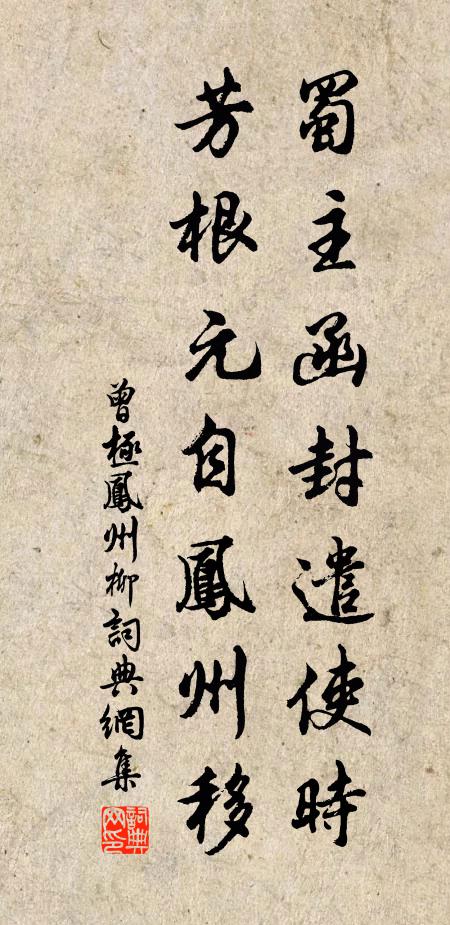 蜀主函封遣使時
芳根元自鳳州移
曾極鳳州柳詞典網集
詞典
网印